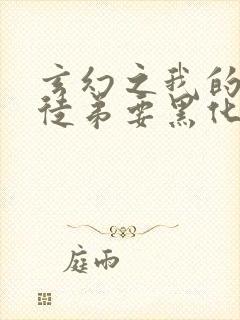 玄幻之我的
徒弟要黑化
庭雨